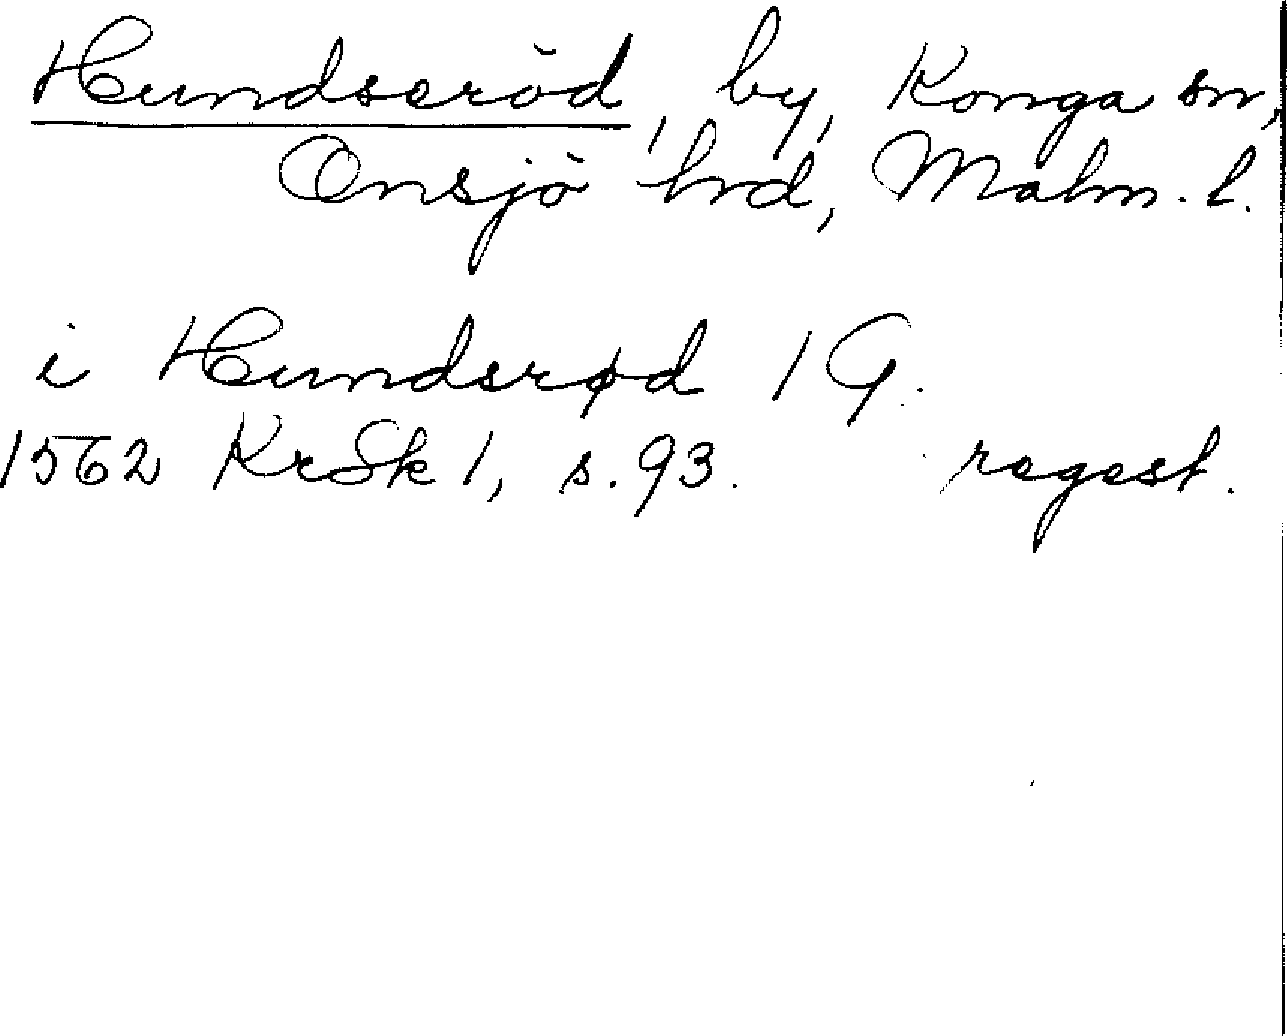 Hundseröd, by, Konga sn,
Onsjö hrd, Malm. l.
i Hundsrød 1 G.
1562 KrSk 1, s. 93. regest.